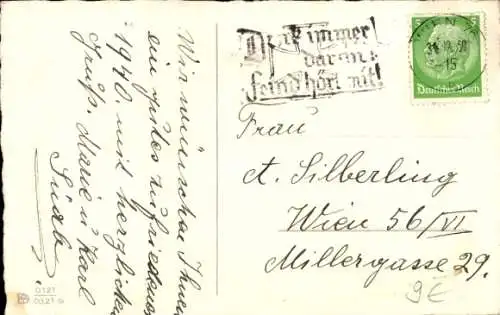 Wir wünschen Ihnen
ein gutes zufriedenes
1940. mit herzlichen
Grüß. Marie u. Karl
Denk immer
daran:
Feind hört mit!
WIEN
-15
Deutsches Reich
Frau
A. Silberling
Wien 56/VI
Millergasse 29.
9€
0121